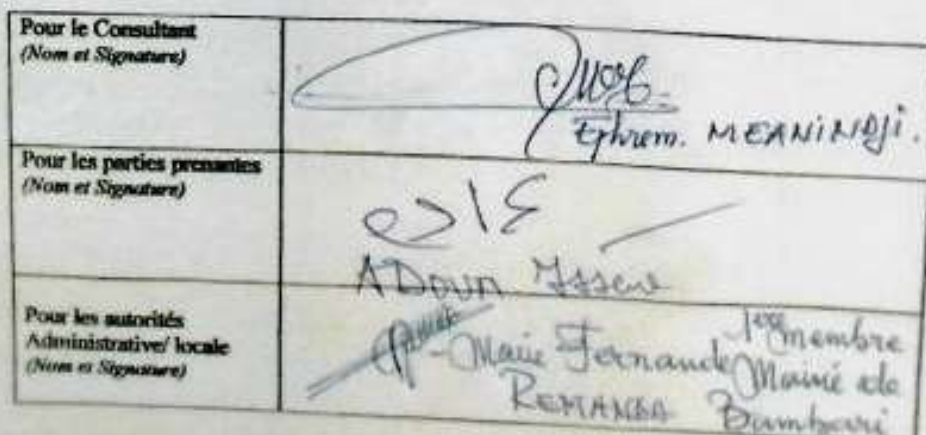 Pour le Consultant
(Nom et Signature)
Ephrem. MEANINDJI.
Pour les parties prenantes
(Nom et Signature)
ADOUM Issene
Pour les autorités
Administrative/ locale
(Nom et Signature)
-Marie Fernande
REMANDA
1ere membre
Mairie de
Bambari